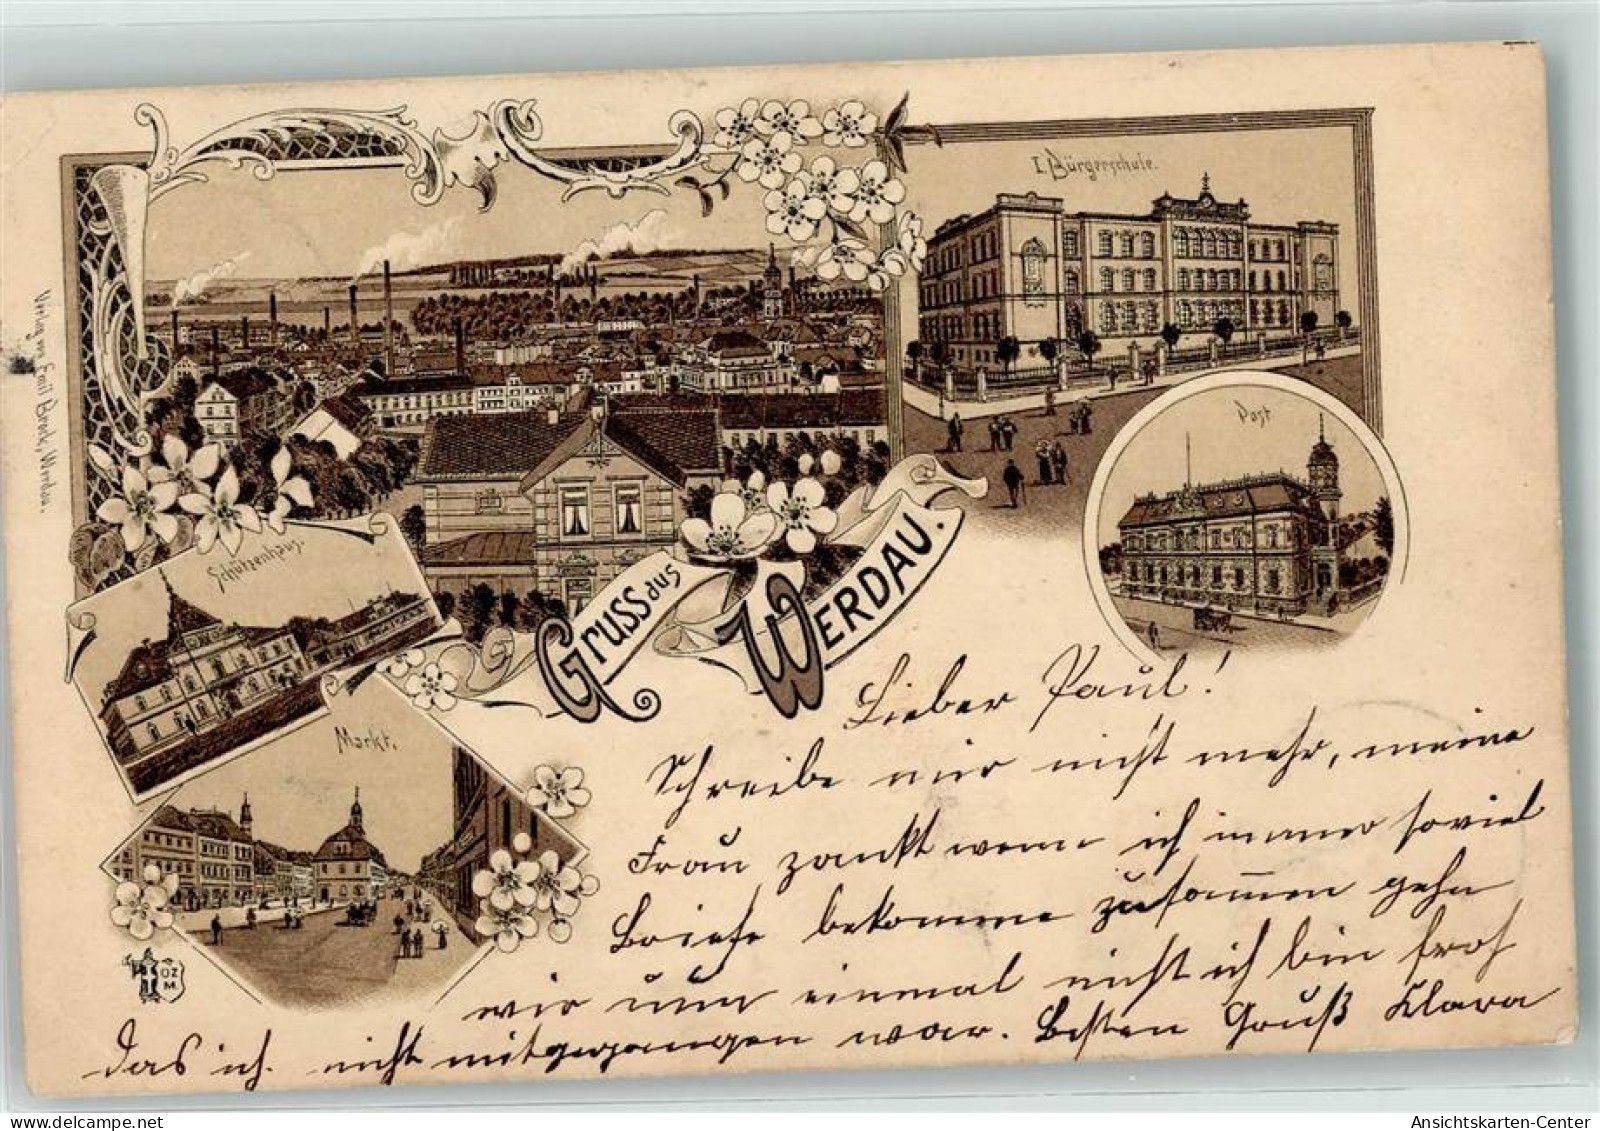 I. Bürgerschule.
Post
Verlag von Emil Brock, Werdau.
Schützenhaus.
Gruss aus
Werdau.
Markt.
OZ
M.
Lieber Paul!
Schreibe mir nicht mehr, meine
Frau zankt wenn ich immer soviel
Briefe bekomme zusammen gehn
wir nun einmal nicht ich bin froh
das ich nicht mitgegangen war. Besten Gruß Klara
Ansichtskarten-Center